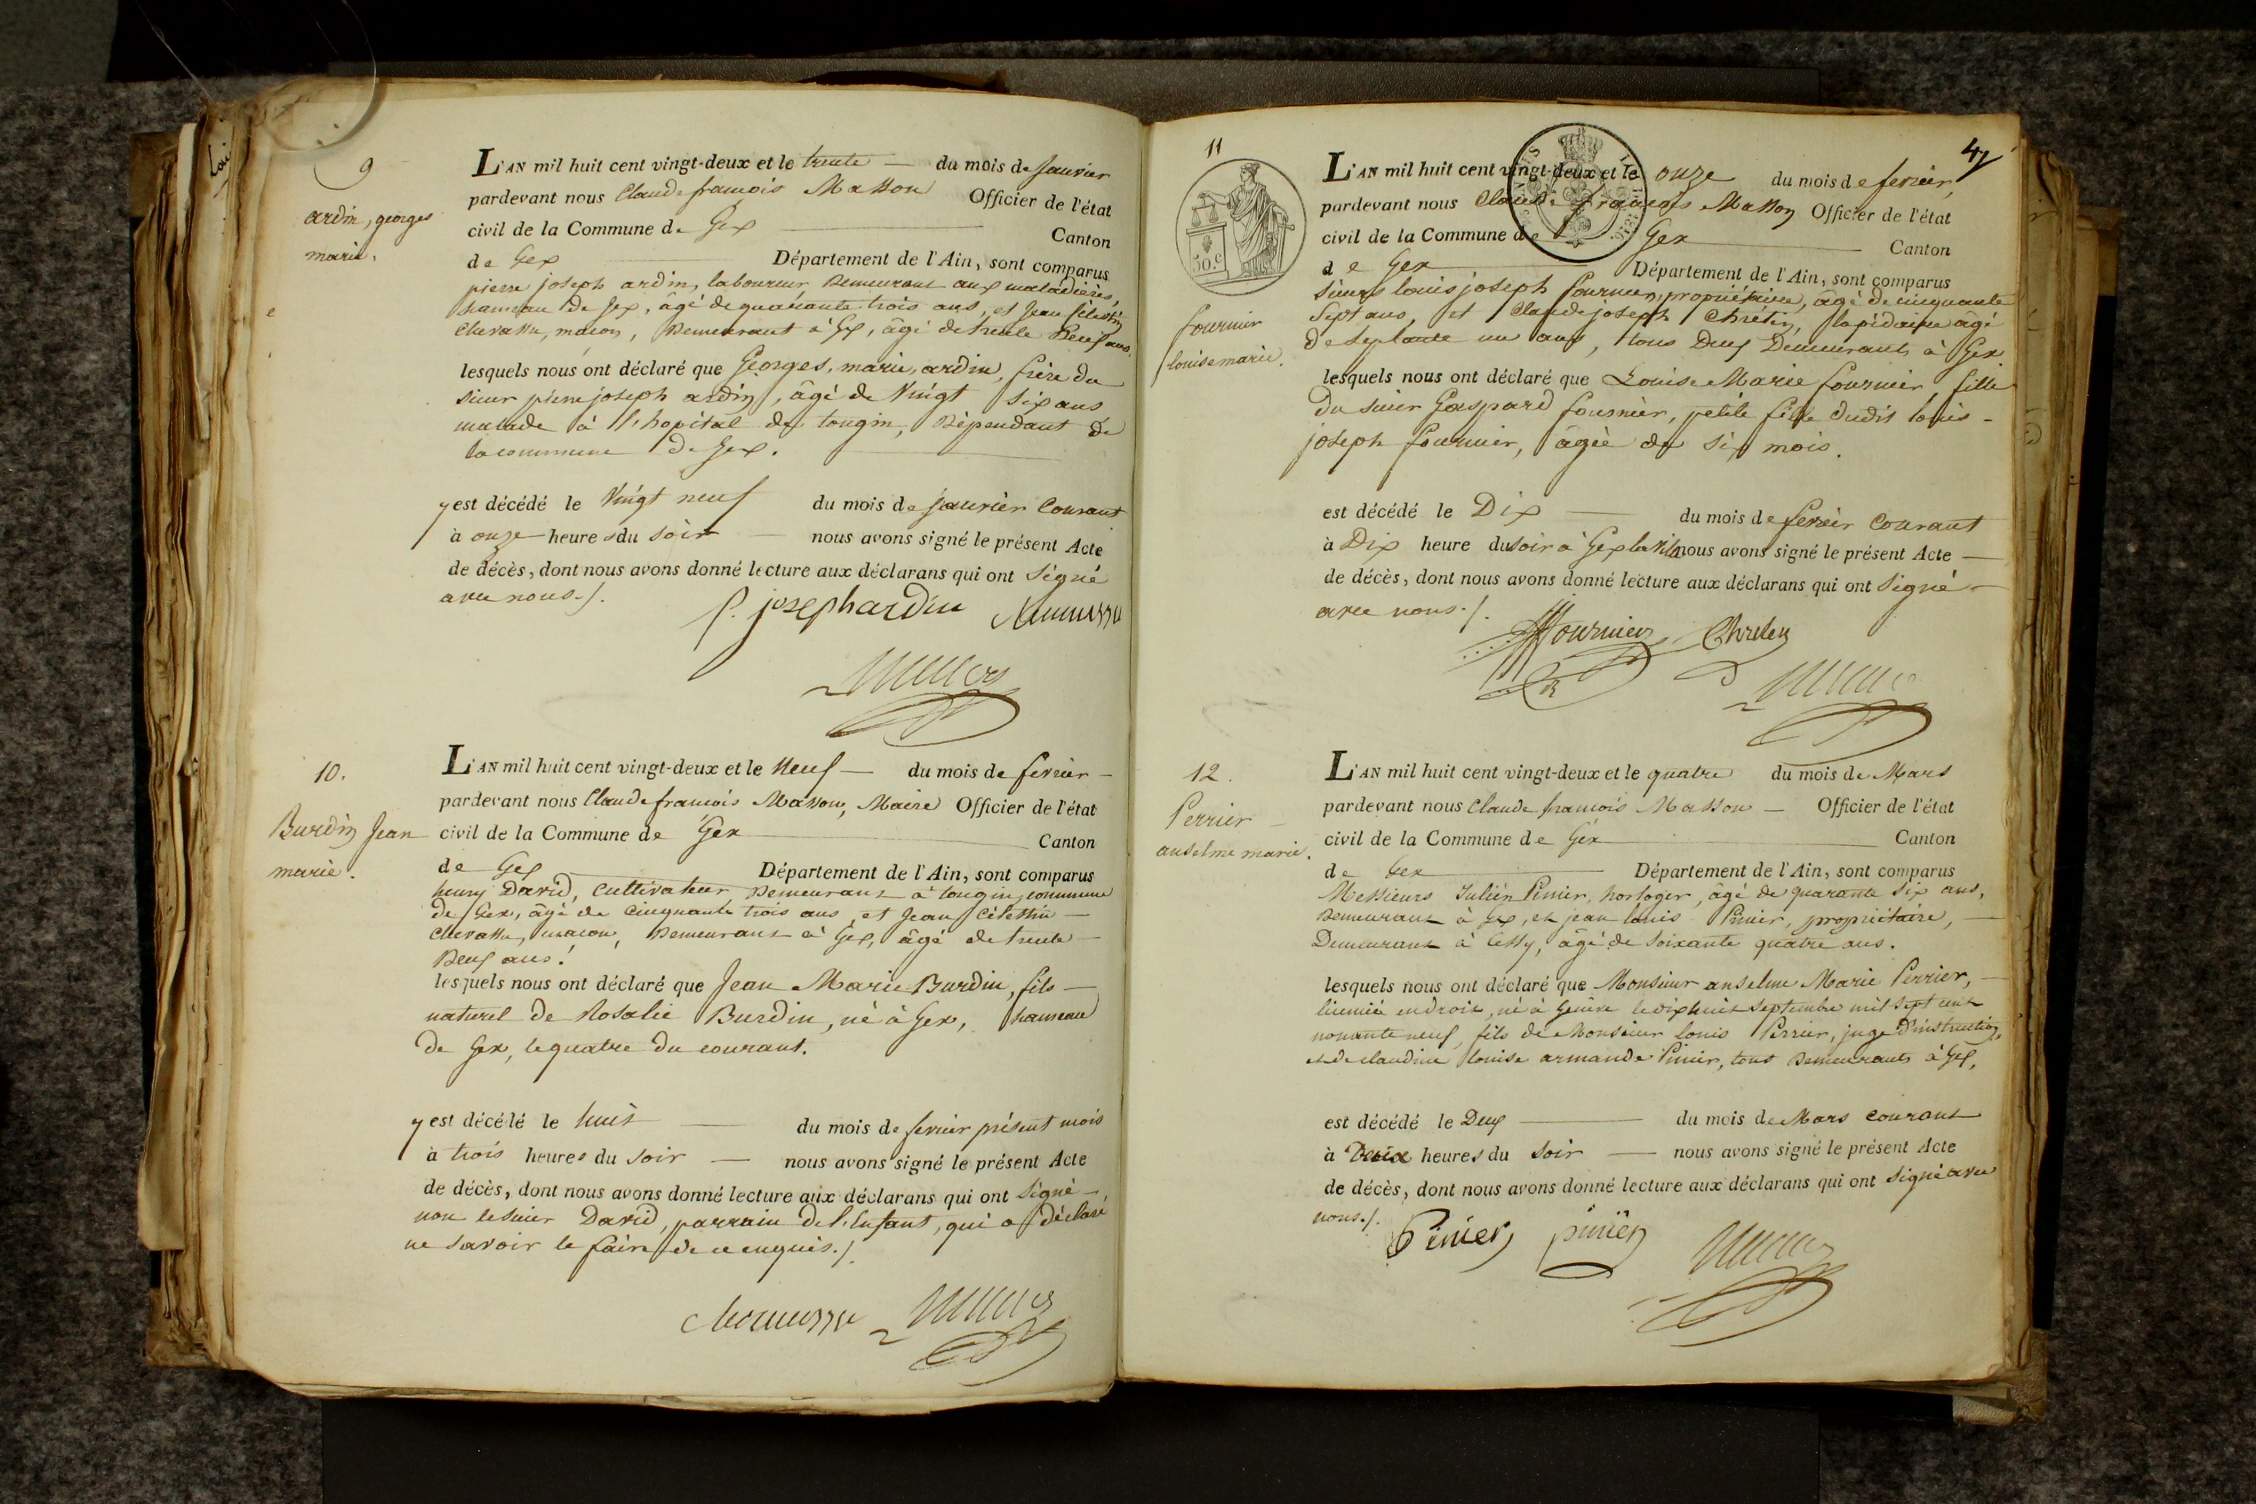 9
ardin, georges
marie.
L'AN mil huit cent vingt-deux et le trente du mois de janvier
pardevant nous Claude françois Masson Officier de l'état
civil de la Commune de Gex Canton
de Gex Département de l'Ain, sont comparus
pierre joseph ardin, laboureur, demeurant aux maladières,
hameau de Gex, âgé de quarante trois ans, et Jean Célestin
Chevassu, maçon, demeurant à Gex, âgé de trente neuf ans.
lesquels nous ont déclaré que Georges, marie, ardin, frère du
sieur pierre joseph ardin, âgé de vingt six ans
malade à l'hopital de tougin, dépendant de
la commune de Gex.
y est décédé le vingt neuf du mois de janvier courant
à onze heures du soir nous avons signé le présent Acte
de décès, dont nous avons donné lecture aux déclarans qui ont signé
avec nous ./.
p. joseph ardin
10.
Burdin Jean
marie.
L'AN mil huit cent vingt-deux et le neuf du mois de fevrier
pardevant nous Claude françois Masson, Maire Officier de l'état
civil de la Commune de Gex Canton
de Gex Département de l'Ain, sont comparus
henry David, cultivateur demeurant à tougin, commune
de Gex, âgé de cinquante trois ans, et Jean Célestin
Chevassu, maçon, demeurant à Gex, âgé de trente
neuf ans.
lesquels nous ont déclaré que Jean Marie Burdin, fils
naturel de Rosalie Burdin, né à Gex, hameau
de Gex, le quatre du courant.
y est décédé le huit du mois de fevrier présent mois
à trois heures du soir nous avons signé le présent Acte
de décès, dont nous avons donné lecture aux déclarans qui ont signé,
non le sieur David, parrain de l'enfant, qui a déclaré
ne savoir le faire de ce enquis ./.
11
47
50.c
fournier
louise marie.
L'AN mil huit cent vingt-deux et le onze du mois de fevrier,
pardevant nous Claude françois Masson Officier de l'état
civil de la Commune de Gex Canton
de Gex Département de l'Ain, sont comparus
sieurs louis joseph fournier, propriétaire, âgé de cinquante
sept ans, et Claude joseph Chrétin, lapidaire âgé
de septante un ans, tous deux demeurants à Gex
lesquels nous ont déclaré que Louise Marie fournier, fille
du sieur Gaspard fournier, petite fille dudit louis-
joseph fournier, âgée de six mois.
est décédé le Dix du mois de fevrier courant
à Dix heure du soir à Gex la ville nous avons signé le présent Acte
de décès, dont nous avons donné lecture aux déclarans qui ont signé
avec nous ./.
fournier Chretin
12.
Perrier
anselme marie.
L'AN mil huit cent vingt-deux et le quatre du mois de Mars
pardevant nous Claude françois Masson Officier de l'état
civil de la Commune de Gex Canton
de Gex Département de l'Ain, sont comparus
Messieurs Julien Pinier, horloger, âgé de quarante six ans,
demeurant à Gex, et jean louis Pinier, propriétaire,
Demeurant à Cessy, âgé de soixante quatre ans.
lesquels nous ont déclaré que Monsieur anselme Marie Perrier,
licencié en droit, né à Genève le dix huit septembre mil sept cent
nonante neuf, fils de Monsieur louis Perrier, juge d'instruction,
et de claudine louise armande Pinier, tous demeurants à Gex,
est décédé le Deux du mois de Mars courant
à heures du soir nous avons signé le présent Acte
de décès, dont nous avons donné lecture aux déclarans qui ont signé avec
nous ./.
Pinier pinier